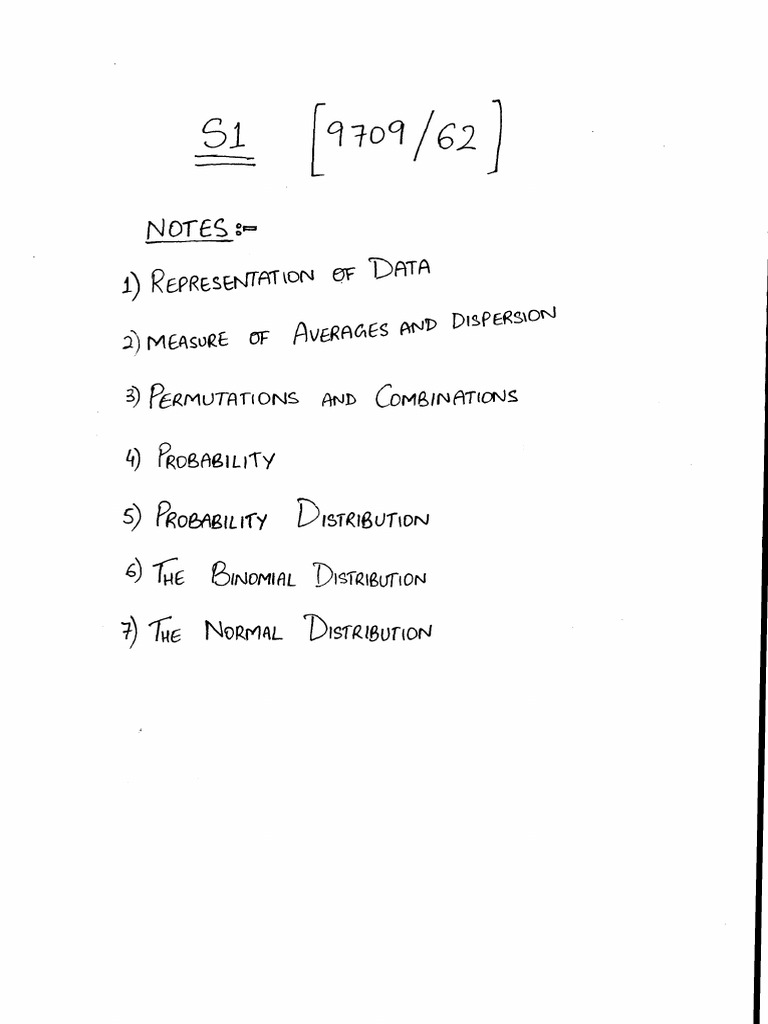 S1 [9709/62]
NOTES:-
1) REPRESENTATION OF DATA
2) MEASURE OF AVERAGES AND DISPERSION
3) PERMUTATIONS AND COMBINATIONS
4) PROBABILITY
5) PROBABILITY DISTRIBUTION
6) THE BINOMIAL DISTRIBUTION
7) THE NORMAL DISTRIBUTION